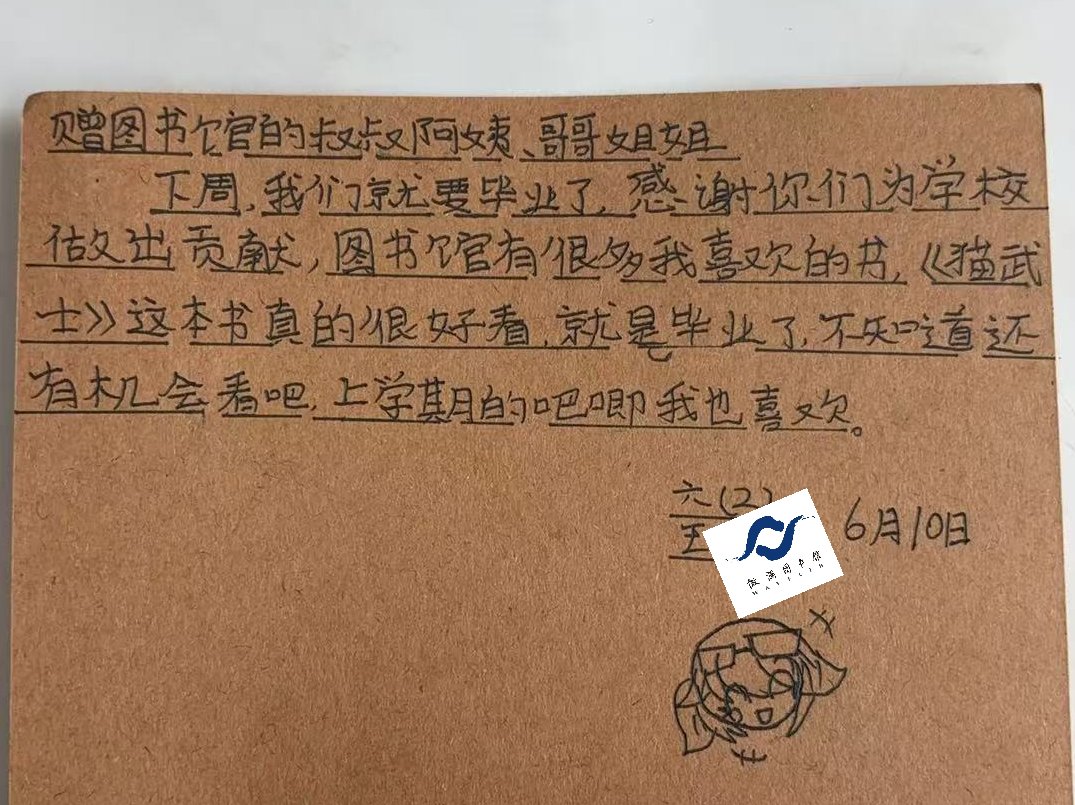 赠图书馆的叔叔阿姨、哥哥姐姐
下周,我们就要毕业了,感谢你们为学校
做出贡献,图书馆有很多我喜欢的书,《猫武
士》这本书真的很好看,就是毕业了,不知道还
有机会看吧,上学期的吧唧我也喜欢。
六(2)
6月10日
图书馆